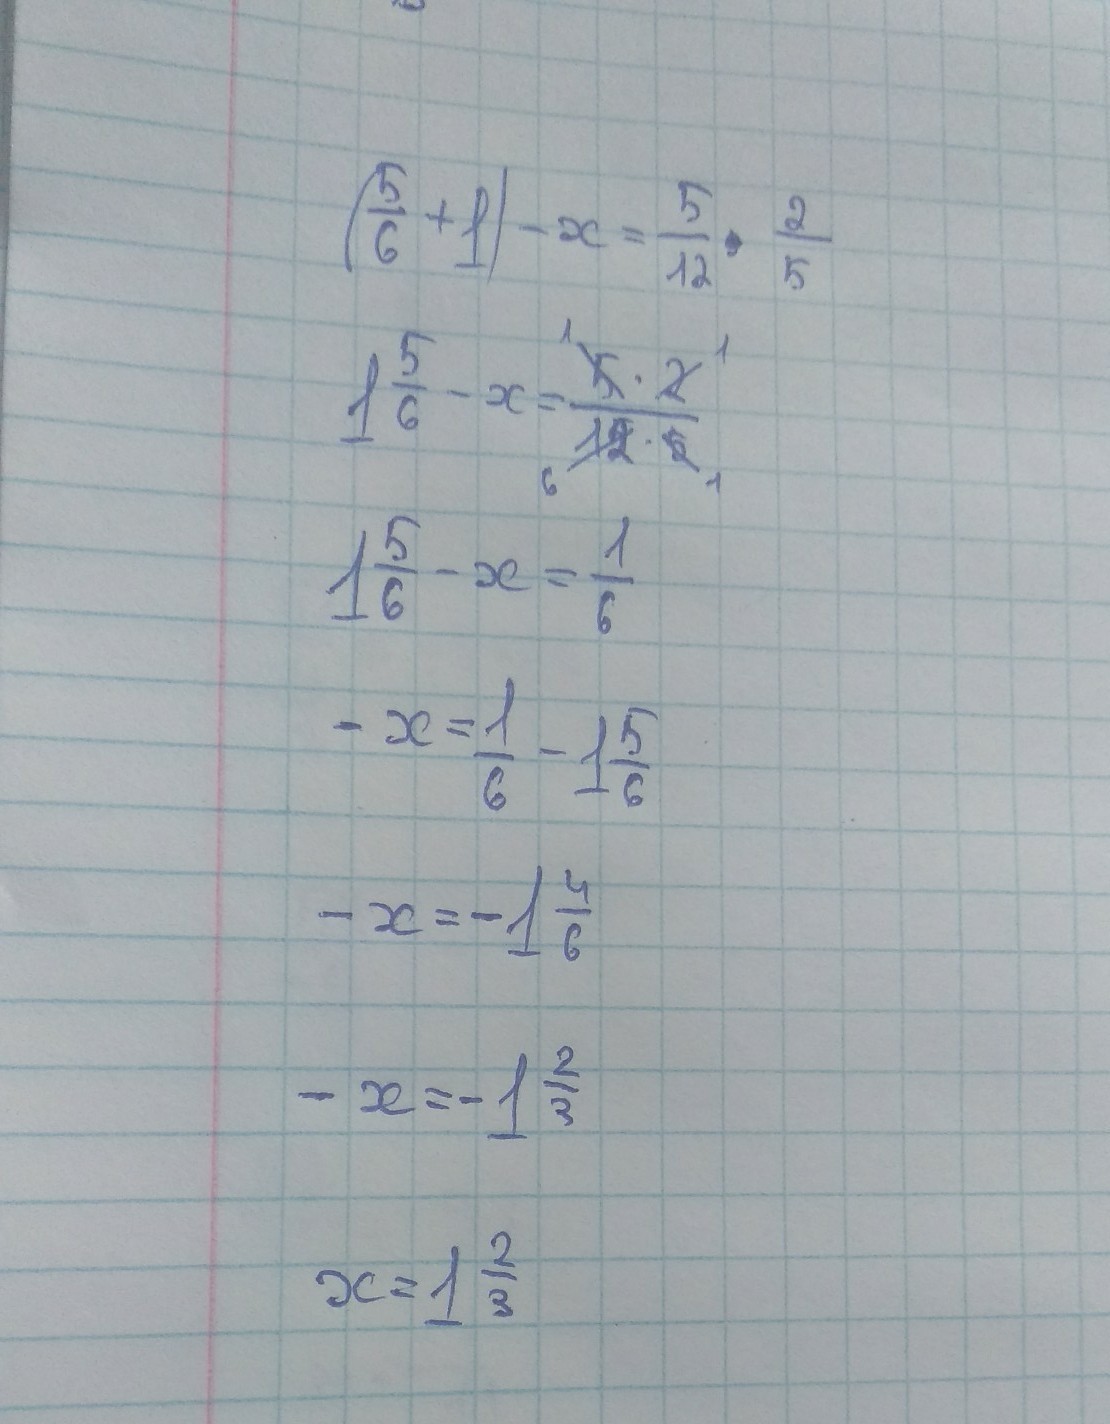 (5/6 + 1) - x = 5/12 · 2/5
1 5/6 - x = 5 · 2 / 12 · 5 1 1 6 1
1 5/6 - x = 1/6
- x = 1/6 - 1 5/6
- x = - 1 4/6
- x = - 1 2/3
x = 1 2/3